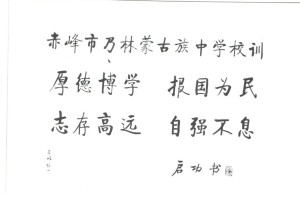 赤峰市乃林蒙古族中学校训
厚德博学 报国为民
志存高远 自强不息
启功书